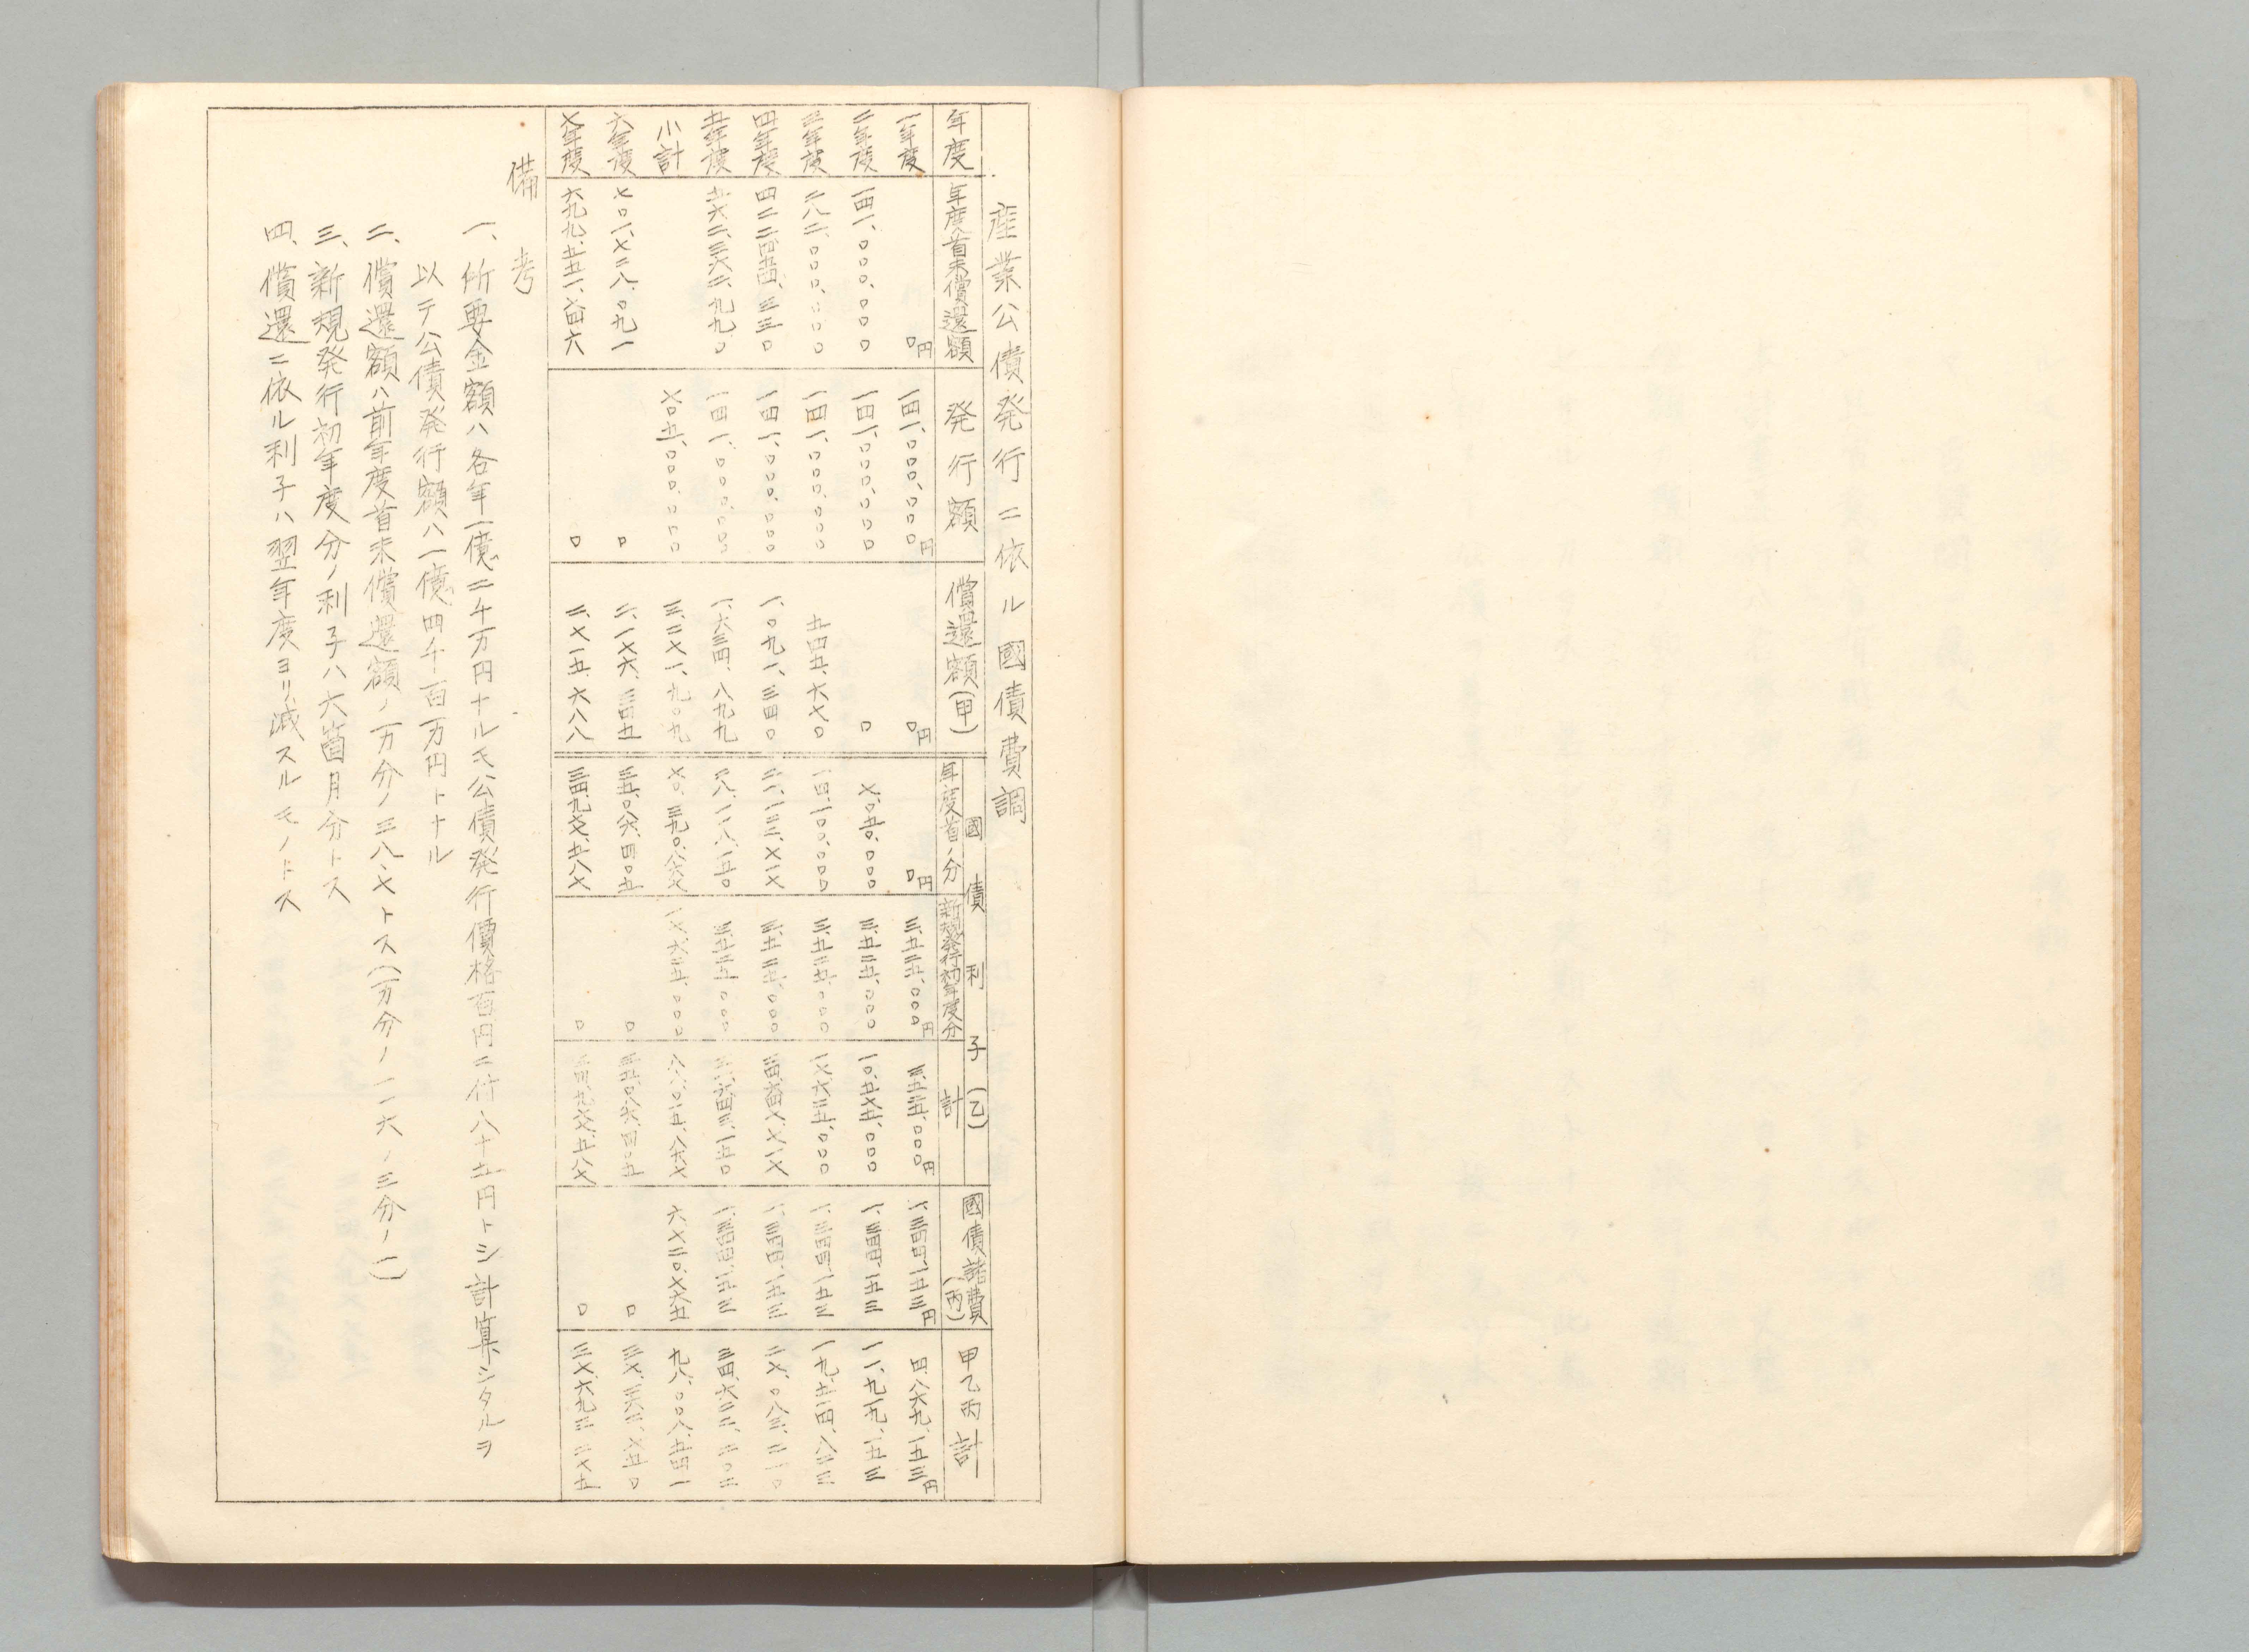 産業公債発行ニ依ル國債費調
年度 年度首未償還額 発行額 償還額(甲) 國債利子(乙) 年度首ノ分 新規発行初年度分 計 國債諸費(丙) 甲乙丙計
一年度 〇円 一四一、〇〇〇、〇〇〇円 〇円 〇円 三、五二五、〇〇〇円 三、五二五、〇〇〇円 一、三四四、一五三円 四、八六九、一五三円
二年度 一四一、〇〇〇、〇〇〇 一四一、〇〇〇、〇〇〇 〇 七、〇五〇、〇〇〇 三、五二五、〇〇〇 一〇、五七五、〇〇〇 一、三四四、一五三 一一、九一九、一五三
三年度 二八二、〇〇〇、〇〇〇 一四一、〇〇〇、〇〇〇 五四五、六七〇 一四、一〇〇、〇〇〇 三、五二五、〇〇〇 一七、六二五、〇〇〇 一、三四四、一五三 一九、五一四、八二三
四年度 四二二、四五四、三三〇 一四一、〇〇〇、〇〇〇 一、〇九一、三四〇 二一、一二二、七一七 三、五二五、〇〇〇 二四、六四七、七一七 一、三四四、一五三 二七、〇八三、二一〇
五年度 五六二、三六二、九九〇 一四一、〇〇〇、〇〇〇 一、六三四、八九九 二八、一一八、一五〇 三、五二五、〇〇〇 三一、六四三、一五〇 一、三四四、一五三 三四、六二二、二〇二
小計 七〇五、〇〇〇、〇〇〇 三、二七一、九〇九 七〇、三九〇、八六七 一七、六二五、〇〇〇 八八、〇一五、八六七 六、七二〇、七六五 九八、〇〇八、五四一
六年度 七〇一、七二八、〇九一 〇 二、一七六、三四五 三五、〇八六、四〇五 〇 三五、〇八六、四〇五 〇 三七、二六二、七五〇
七年度 六九九、五五一、七四六 〇 二、七一五、六八八 三四、九七七、五八七 〇 三四、九七七、五八七 〇 三七、六九三、二七五
備考
一、所要金額ハ各年一億二千万円ナルモ公債発行價格百円ニ付八十五円トシ計算シタルヲ
以テ公債発行額ハ一億四千百万円トナル
二、償還額ハ前年度首未償還額ノ万分ノ三八、七トス(万分ノ一一六ノ三分ノ一)
三、新規発行初年度分ノ利子ハ六箇月分トス
四、償還ニ依ル利子ハ翌年度ヨリ減スルモノトス